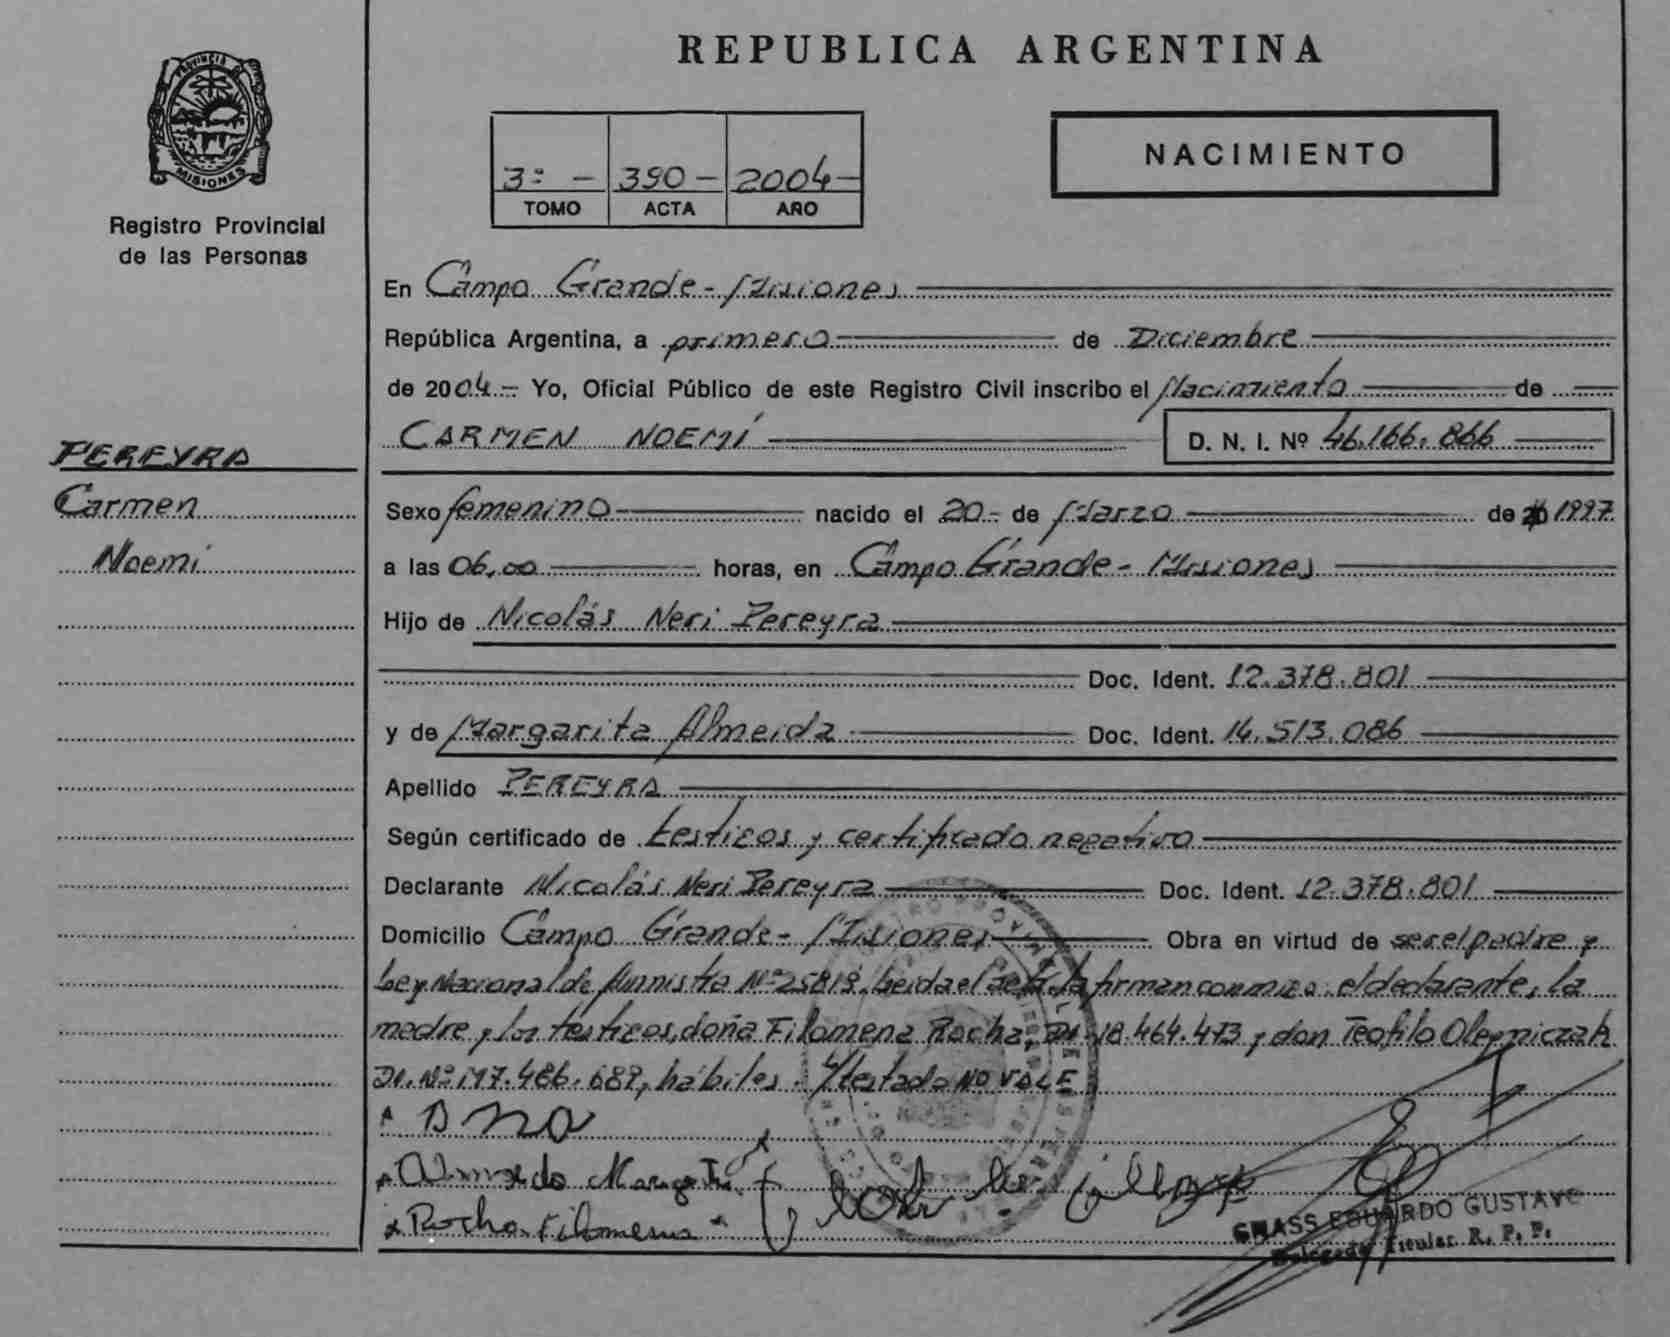 REPUBLICA ARGENTINA
PROVINCIA DE
MISIONES
Registro Provincial
de las Personas
3º - 390 - 2004 -
TOMO ACTA AÑO
NACIMIENTO
En Campo Grande - Misiones
República Argentina, a primero de Diciembre
de 2004.- Yo, Oficial Público de este Registro Civil inscribo el Nacimiento de
CARMEN NOEMÍ D. N. I. Nº 46.166.866
PEREYRA
Carmen
Noemí
Sexo femenino nacido el 20- de Marzo de 20 1997
a las 06,00 horas, en Campo Grande - Misiones
Hijo de Nicolás Neri Pereyra
Doc. Ident. 12.378.801
y de Margarita Almeida Doc. Ident. 14.513.086
Apellido PEREYRA
Según certificado de testigos y certificado negativo
Declarante Nicolás Neri Pereyra Doc. Ident. 12.378.801
Domicilio Campo Grande - Misiones Obra en virtud de ser el padre y
Ley Nacional de Amnistía Nº 25819. Leída el acta, la firman conmigo: el declarante, la
madre y los testigos, doña Filomena Rocha, DI. 18.464.473 y don Teofilo Olejniczak
DI. Nº M7.486.689, hábiles. Testado NO VALE
Almeida Margarita
Rocha Filomena
GNASS EDUARDO GUSTAVO
Delegado Titular R. P. P.